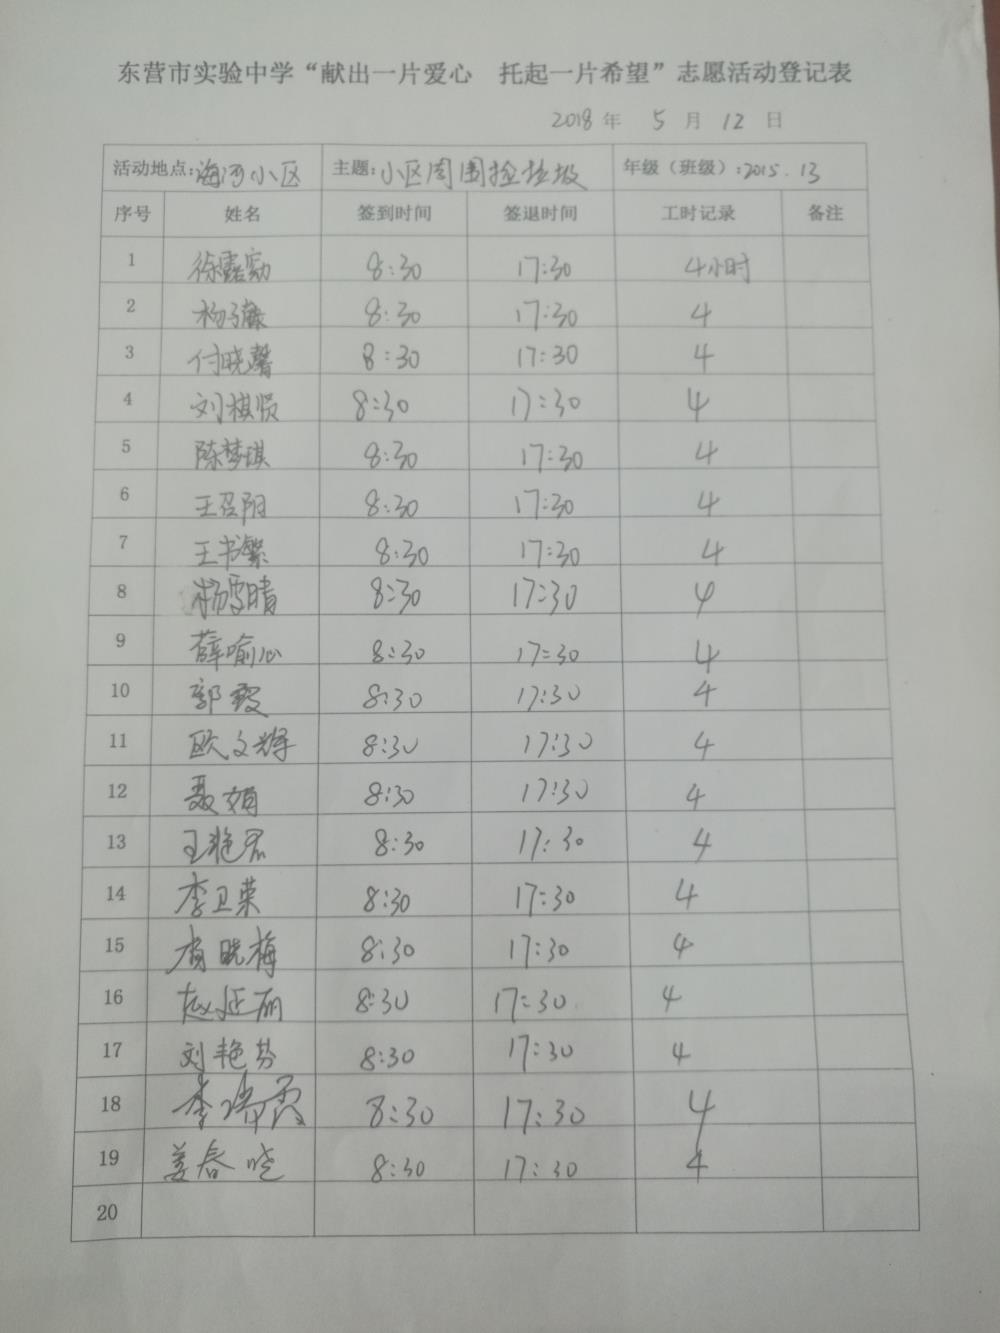 东营市实验中学“献出一片爱心 托起一片希望”志愿活动登记表
2018 年 5 月 12 日
活动地点:海河小区 主题:小区周围捡垃圾 年级（班级）:2015.13
序号 姓名 签到时间 签退时间 工时记录 备注
1 徐露 8:30 17:30 4小时
2 杨子 8:30 17:30 4
3 付晓馨 8:30 17:30 4
4 刘祺贤 8:30 17:30 4
5 陈梦琪 8:30 17:30 4
6 王召阳 8:30 17:30 4
7 王书繁 8:30 17:30 4
8 杨雪晴 8:30 17:30 4
9 薛喻心 8:30 17:30 4
10 郭霞 8:30 17:30 4
11 欧文辉 8:30 17:30 4
12 聂娟 8:30 17:30 4
13 王艳君 8:30 17:30 4
14 李卫荣 8:30 17:30 4
15 晓梅 8:30 17:30 4
16 赵延丽 8:30 17:30 4
17 刘艳芬 8:30 17:30 4
18 李霞 8:30 17:30 4
19 姜春晓 8:30 17:30 4
20